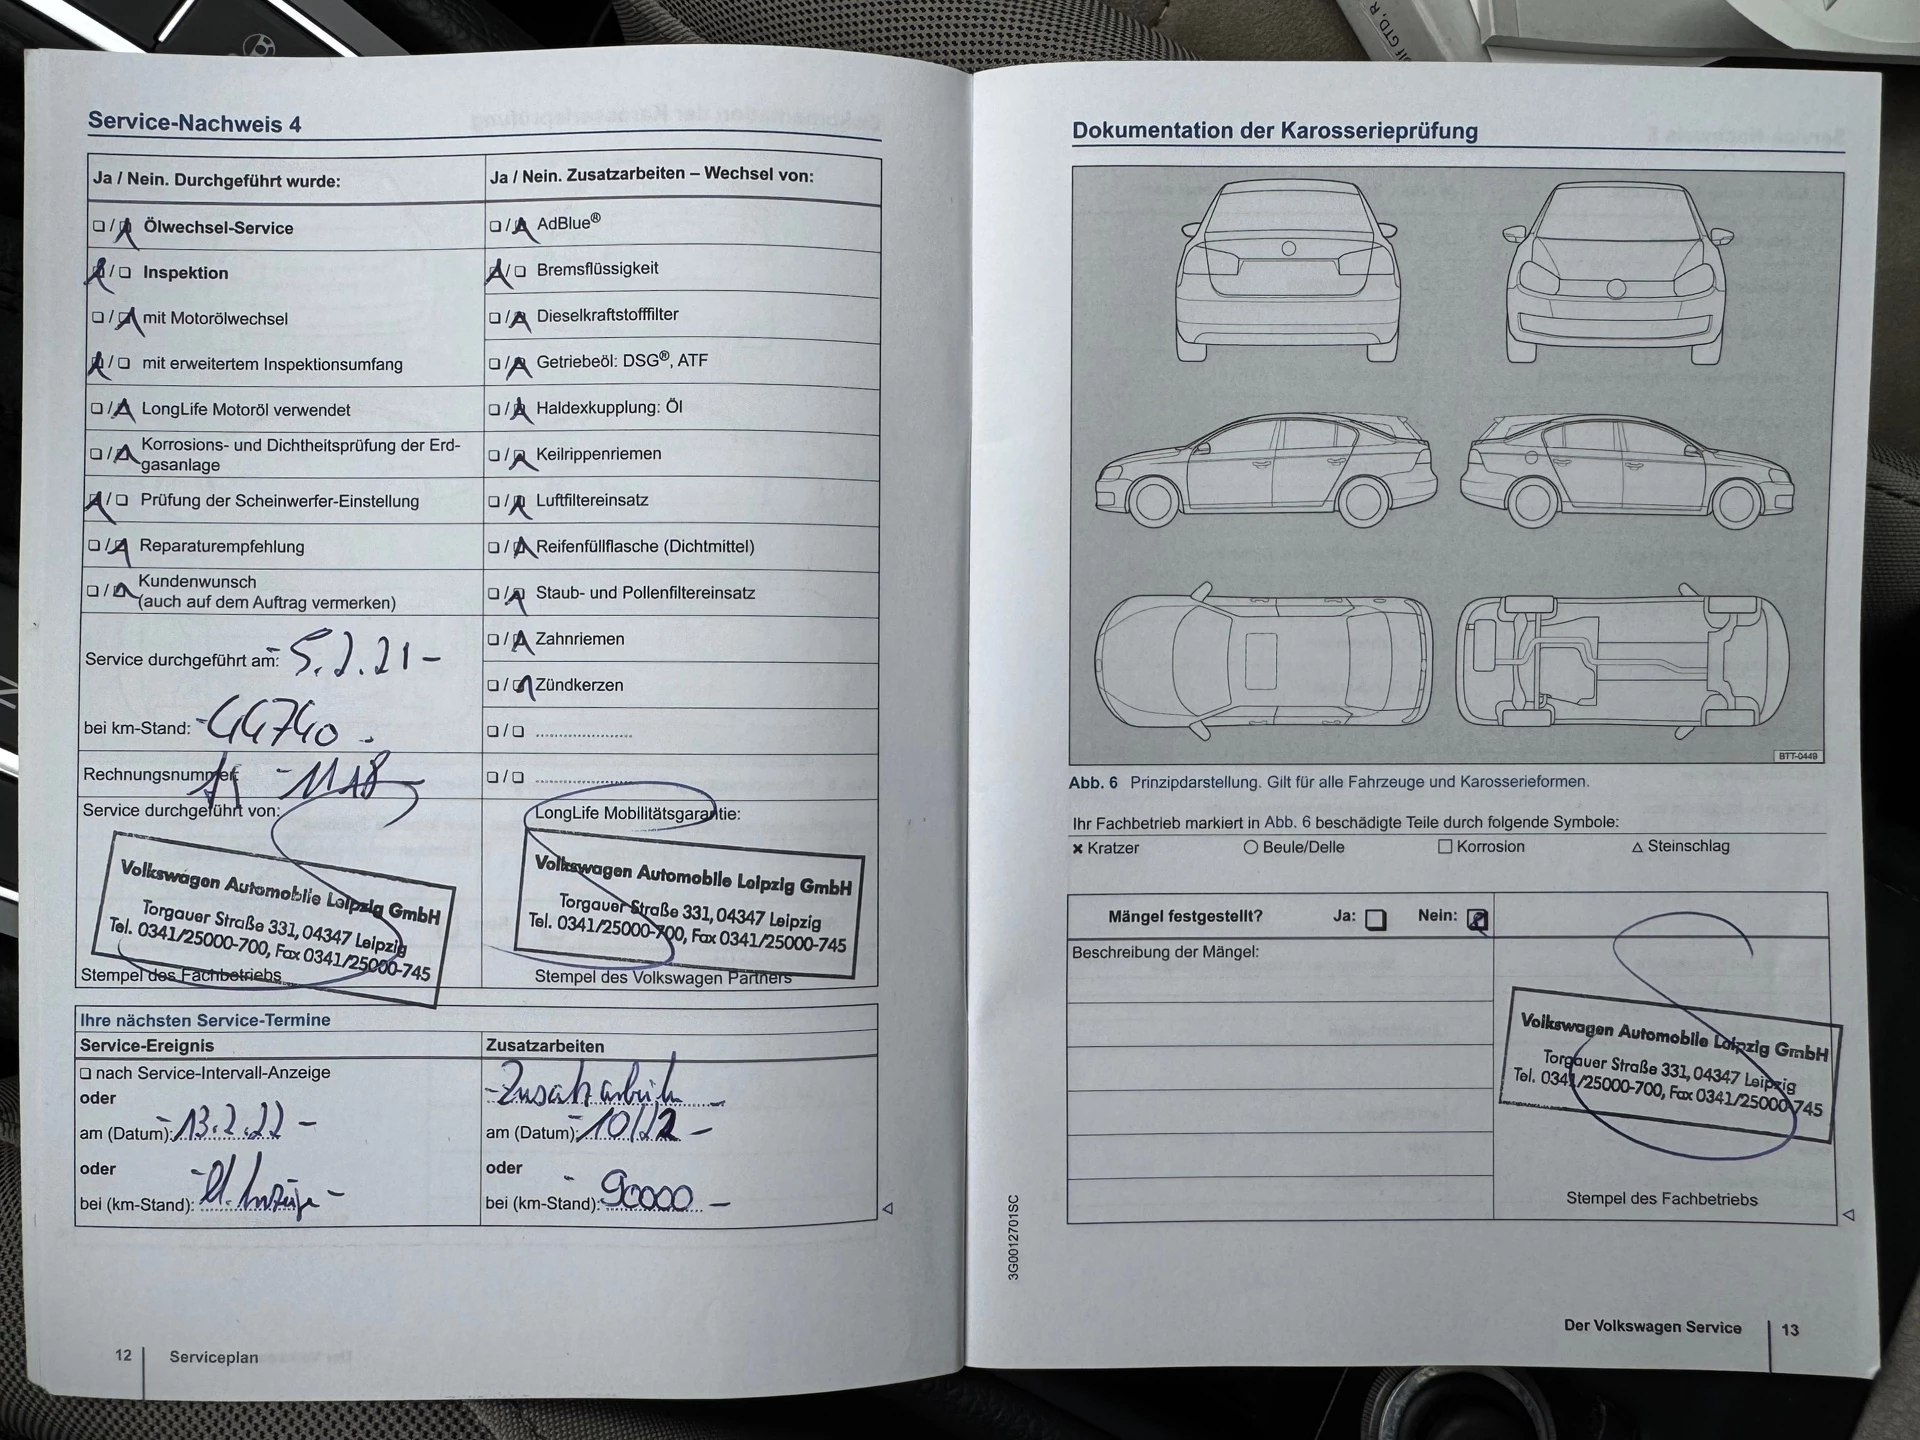 Service-Nachweis 4
Ja / Nein. Durchgeführt wurde:
Ölwechsel-Service
Inspektion
mit Motorölwechsel
mit erweitertem Inspektionsumfang
LongLife Motoröl verwendet
Korrosions- und Dichtheitsprüfung der Erd-
gasanlage
Prüfung der Scheinwerfer-Einstellung
Reparaturempfehlung
Kundenwunsch
(auch auf dem Auftrag vermerken)
Service durchgeführt am: 5.2.21 -
bei km-Stand: -44740 -
Rechnungsnummer:
Service durchgeführt von:
Volkswagen Automobile Leipzig GmbH
Torgauer Straße 331, 04347 Leipzig
Tel. 0341/25000-700, Fax 0341/25000-745
Stempel des Fachbetriebs
Ja / Nein. Zusatzarbeiten – Wechsel von:
AdBlue®
Bremsflüssigkeit
Dieselkraftstofffilter
Getriebeöl: DSG®, ATF
Haldexkupplung: Öl
Keilrippenriemen
Luftfiltereinsatz
Reifenfüllflasche (Dichtmittel)
Staub- und Pollenfiltereinsatz
Zahnriemen
Zündkerzen
LongLife Mobilitätsgarantie:
Volkswagen Automobile Leipzig GmbH
Torgauer Straße 331, 04347 Leipzig
Tel. 0341/25000-700, Fax 0341/25000-745
Stempel des Volkswagen Partners
Ihre nächsten Service-Termine
Service-Ereignis
nach Service-Intervall-Anzeige
oder
am (Datum): 13.2.22 -
oder
bei (km-Stand):
Zusatzarbeiten
-Zusatzarbeiten -
am (Datum): -10/22 -
oder
bei (km-Stand): -90000 -
12 Serviceplan
Dokumentation der Karosserieprüfung
BTT-0449
Abb. 6 Prinzipdarstellung. Gilt für alle Fahrzeuge und Karosserieformen.
Ihr Fachbetrieb markiert in Abb. 6 beschädigte Teile durch folgende Symbole:
Kratzer Beule/Delle Korrosion Steinschlag
Mängel festgestellt? Ja: Nein:
Beschreibung der Mängel:
Volkswagen Automobile Leipzig GmbH
Torgauer Straße 331, 04347 Leipzig
Tel. 0341/25000-700, Fax 0341/25000-745
Stempel des Fachbetriebs
3G0012701SC
Der Volkswagen Service 13